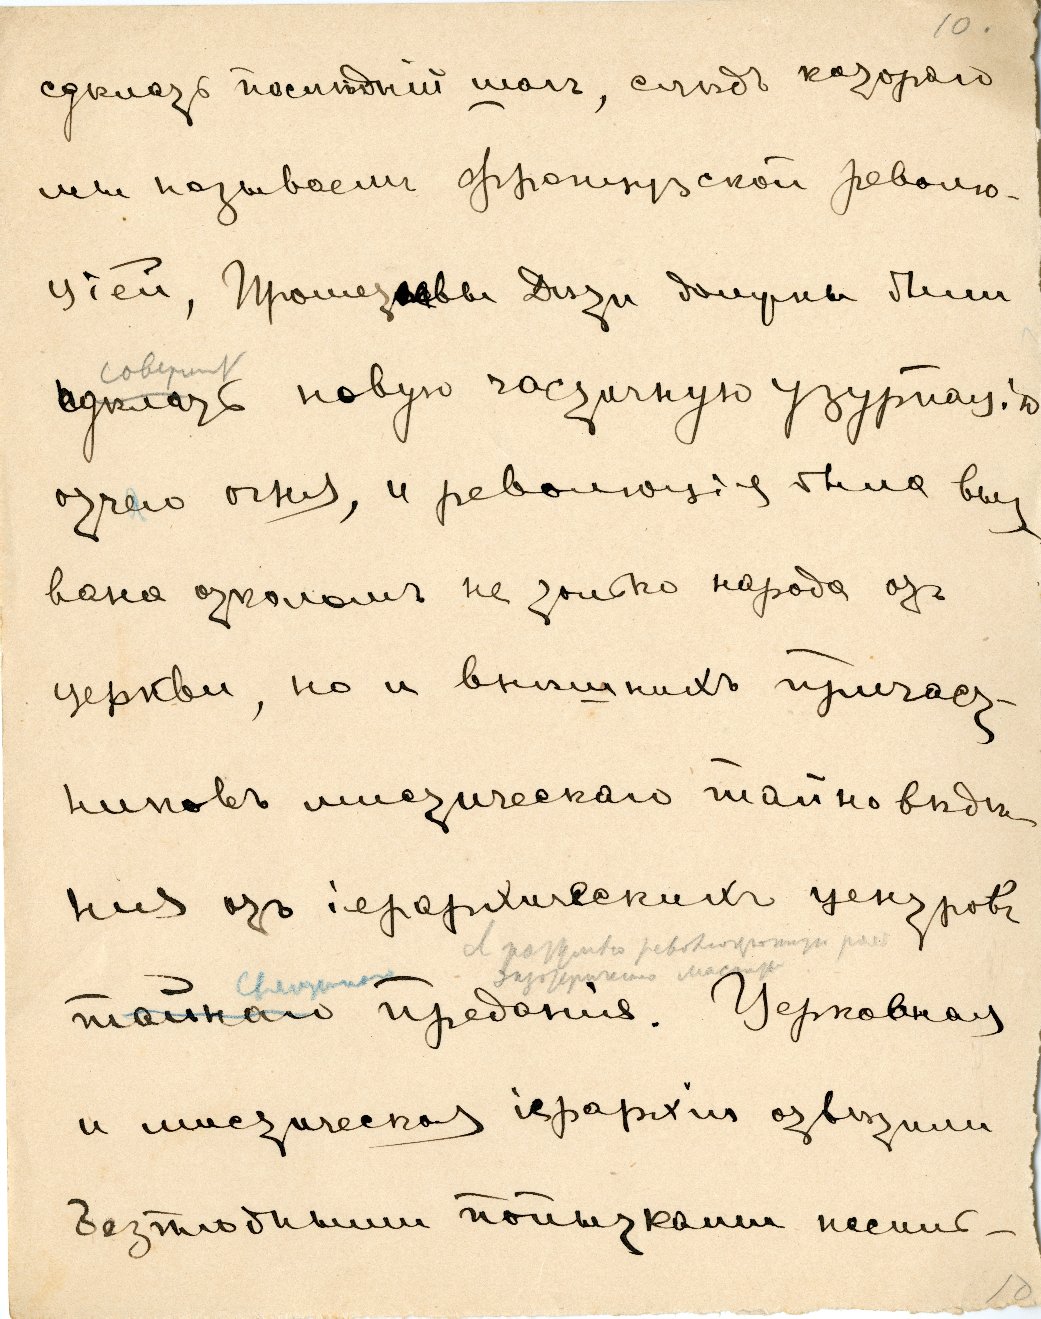 10.
сдѣлать послѣдній шагъ, слѣдъ котораго
мы называемъ французской револю-
ціей, Прометеевы дѣти должны были
соверши
сдѣлать новую частичную узурпацію
отчаго огня, и революція была выз
вана отколомъ не только народа отъ
церкви, но и внѣшнихъ причаст-
никовъ мистическаго тайновѣдѣ-
нія отъ іерархическихъ центровъ
священнаго
тайнаго преданія. Церковная
и мистическая іерархія отвѣтили
безплодными попытками несиль-
10